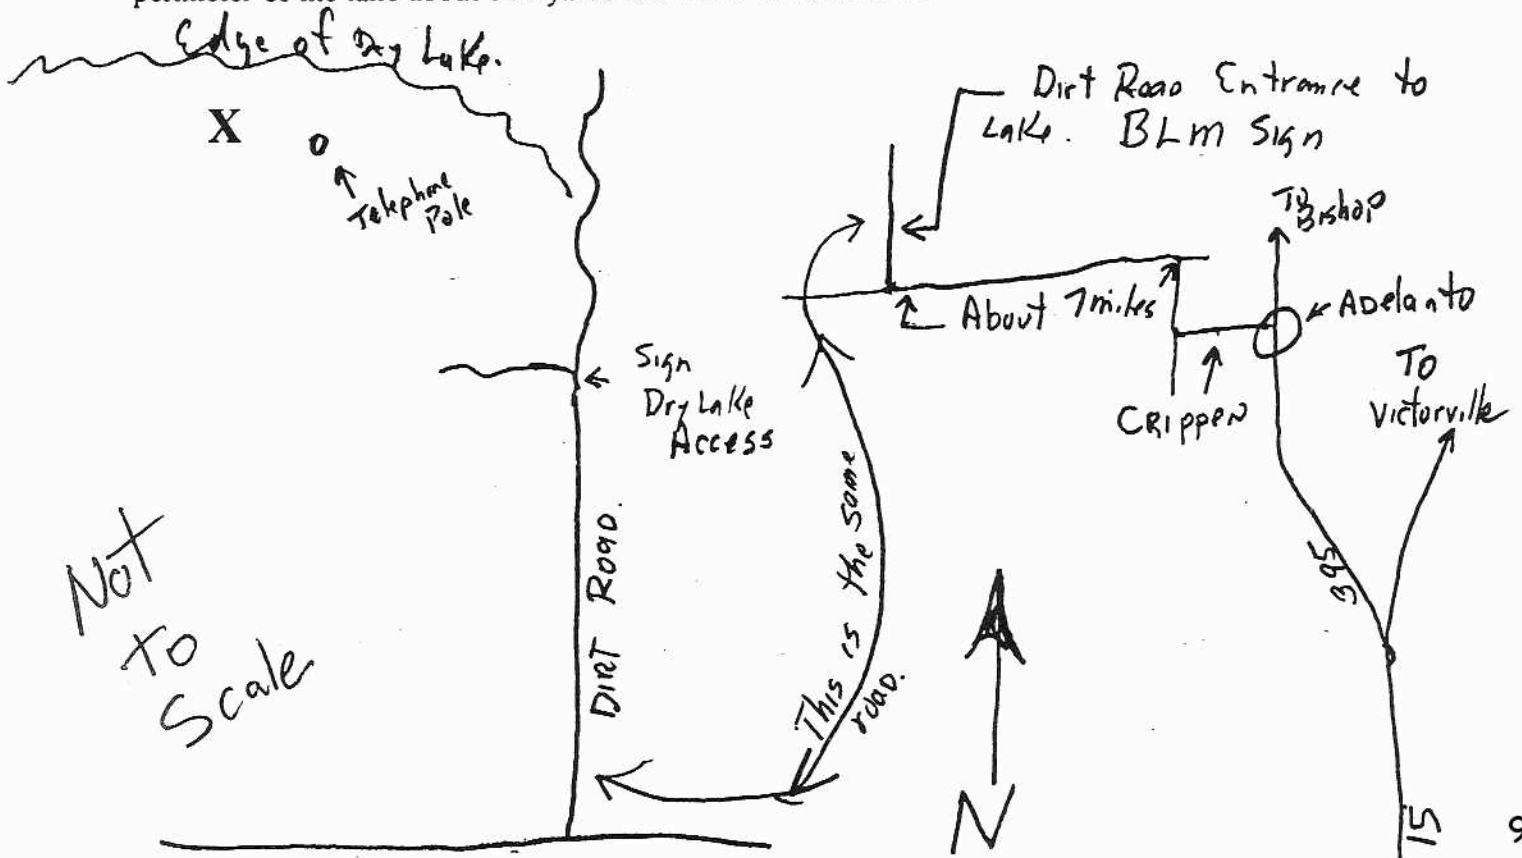 Edge of Dry Lake.
X
Telephone
Pole
Dirt Road Entrance to
Lake. BLM Sign
To
Bishop
About 7 miles
Adelanto
To
Victorville
CRIPPEN
Sign
Dry Lake
Access
DIRT ROAD.
This is the same
road.
395
Not
To
Scale
N
15